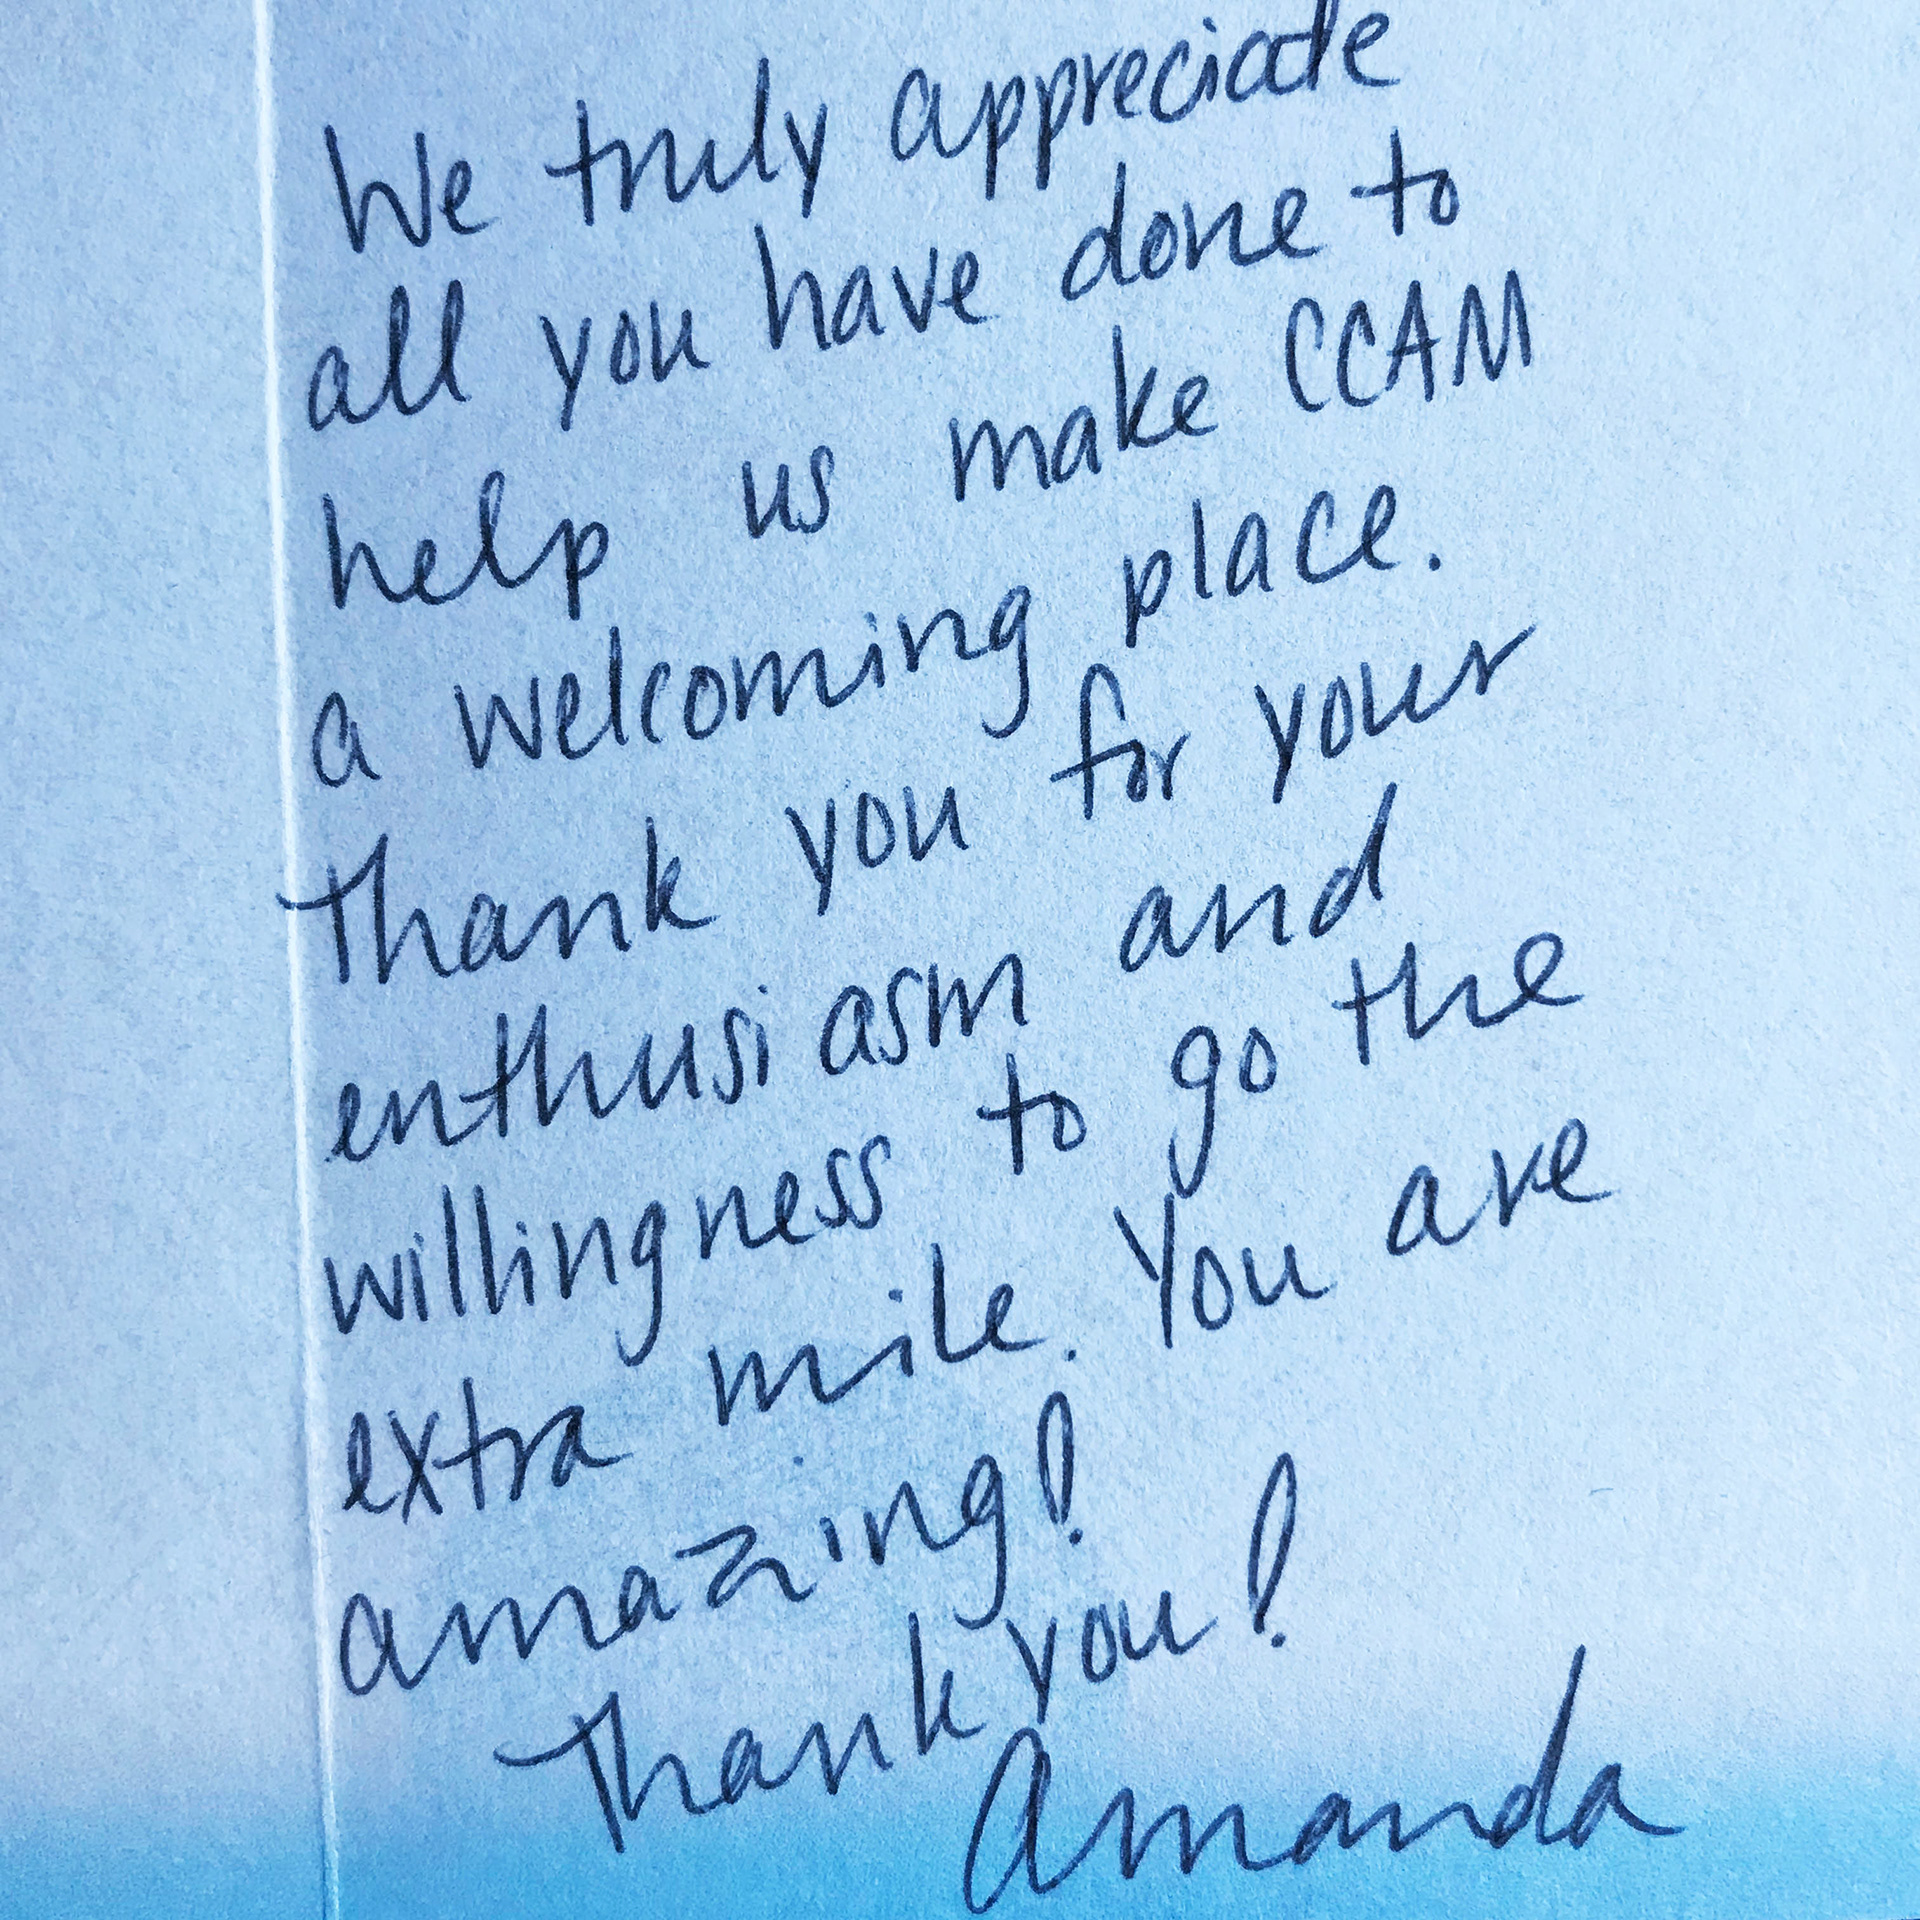 We truly appreciate
all you have done to
help us make CCAM
a welcoming place.
Thank you for your
enthusiasm and
willingness to go the
extra mile. You are
amazing!
Thank you!
Amanda